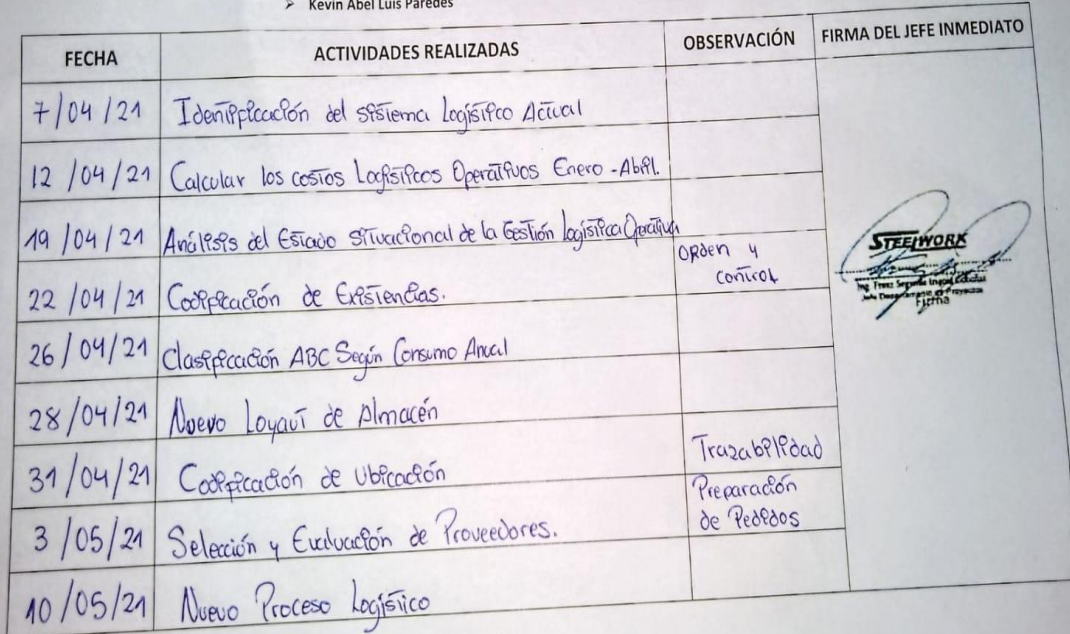 ➢ Kevin Abel Luis Paredes
FECHA ACTIVIDADES REALIZADAS OBSERVACIÓN FIRMA DEL JEFE INMEDIATO
7/04/21 Identificación del sistema Logístico Actual
12/04/21 Calcular los costos Logísticos Operativos Enero - Abril.
19/04/21 Análisis del Estado Situacional de la Gestión Logística Operativa
22/04/21 Codificación de Existencias. Orden y
control
26/04/21 Clasificación ABC Según Consumo Anual
28/04/21 Nuevo Loyaut de Almacén
31/04/21 Codificación de Ubicación Trazabilidad
3/05/21 Selección y Evaluación de Proveedores. Preparación
de Pedidos
10/05/21 Nuevo Proceso Logístico
STEELWORK
Firma